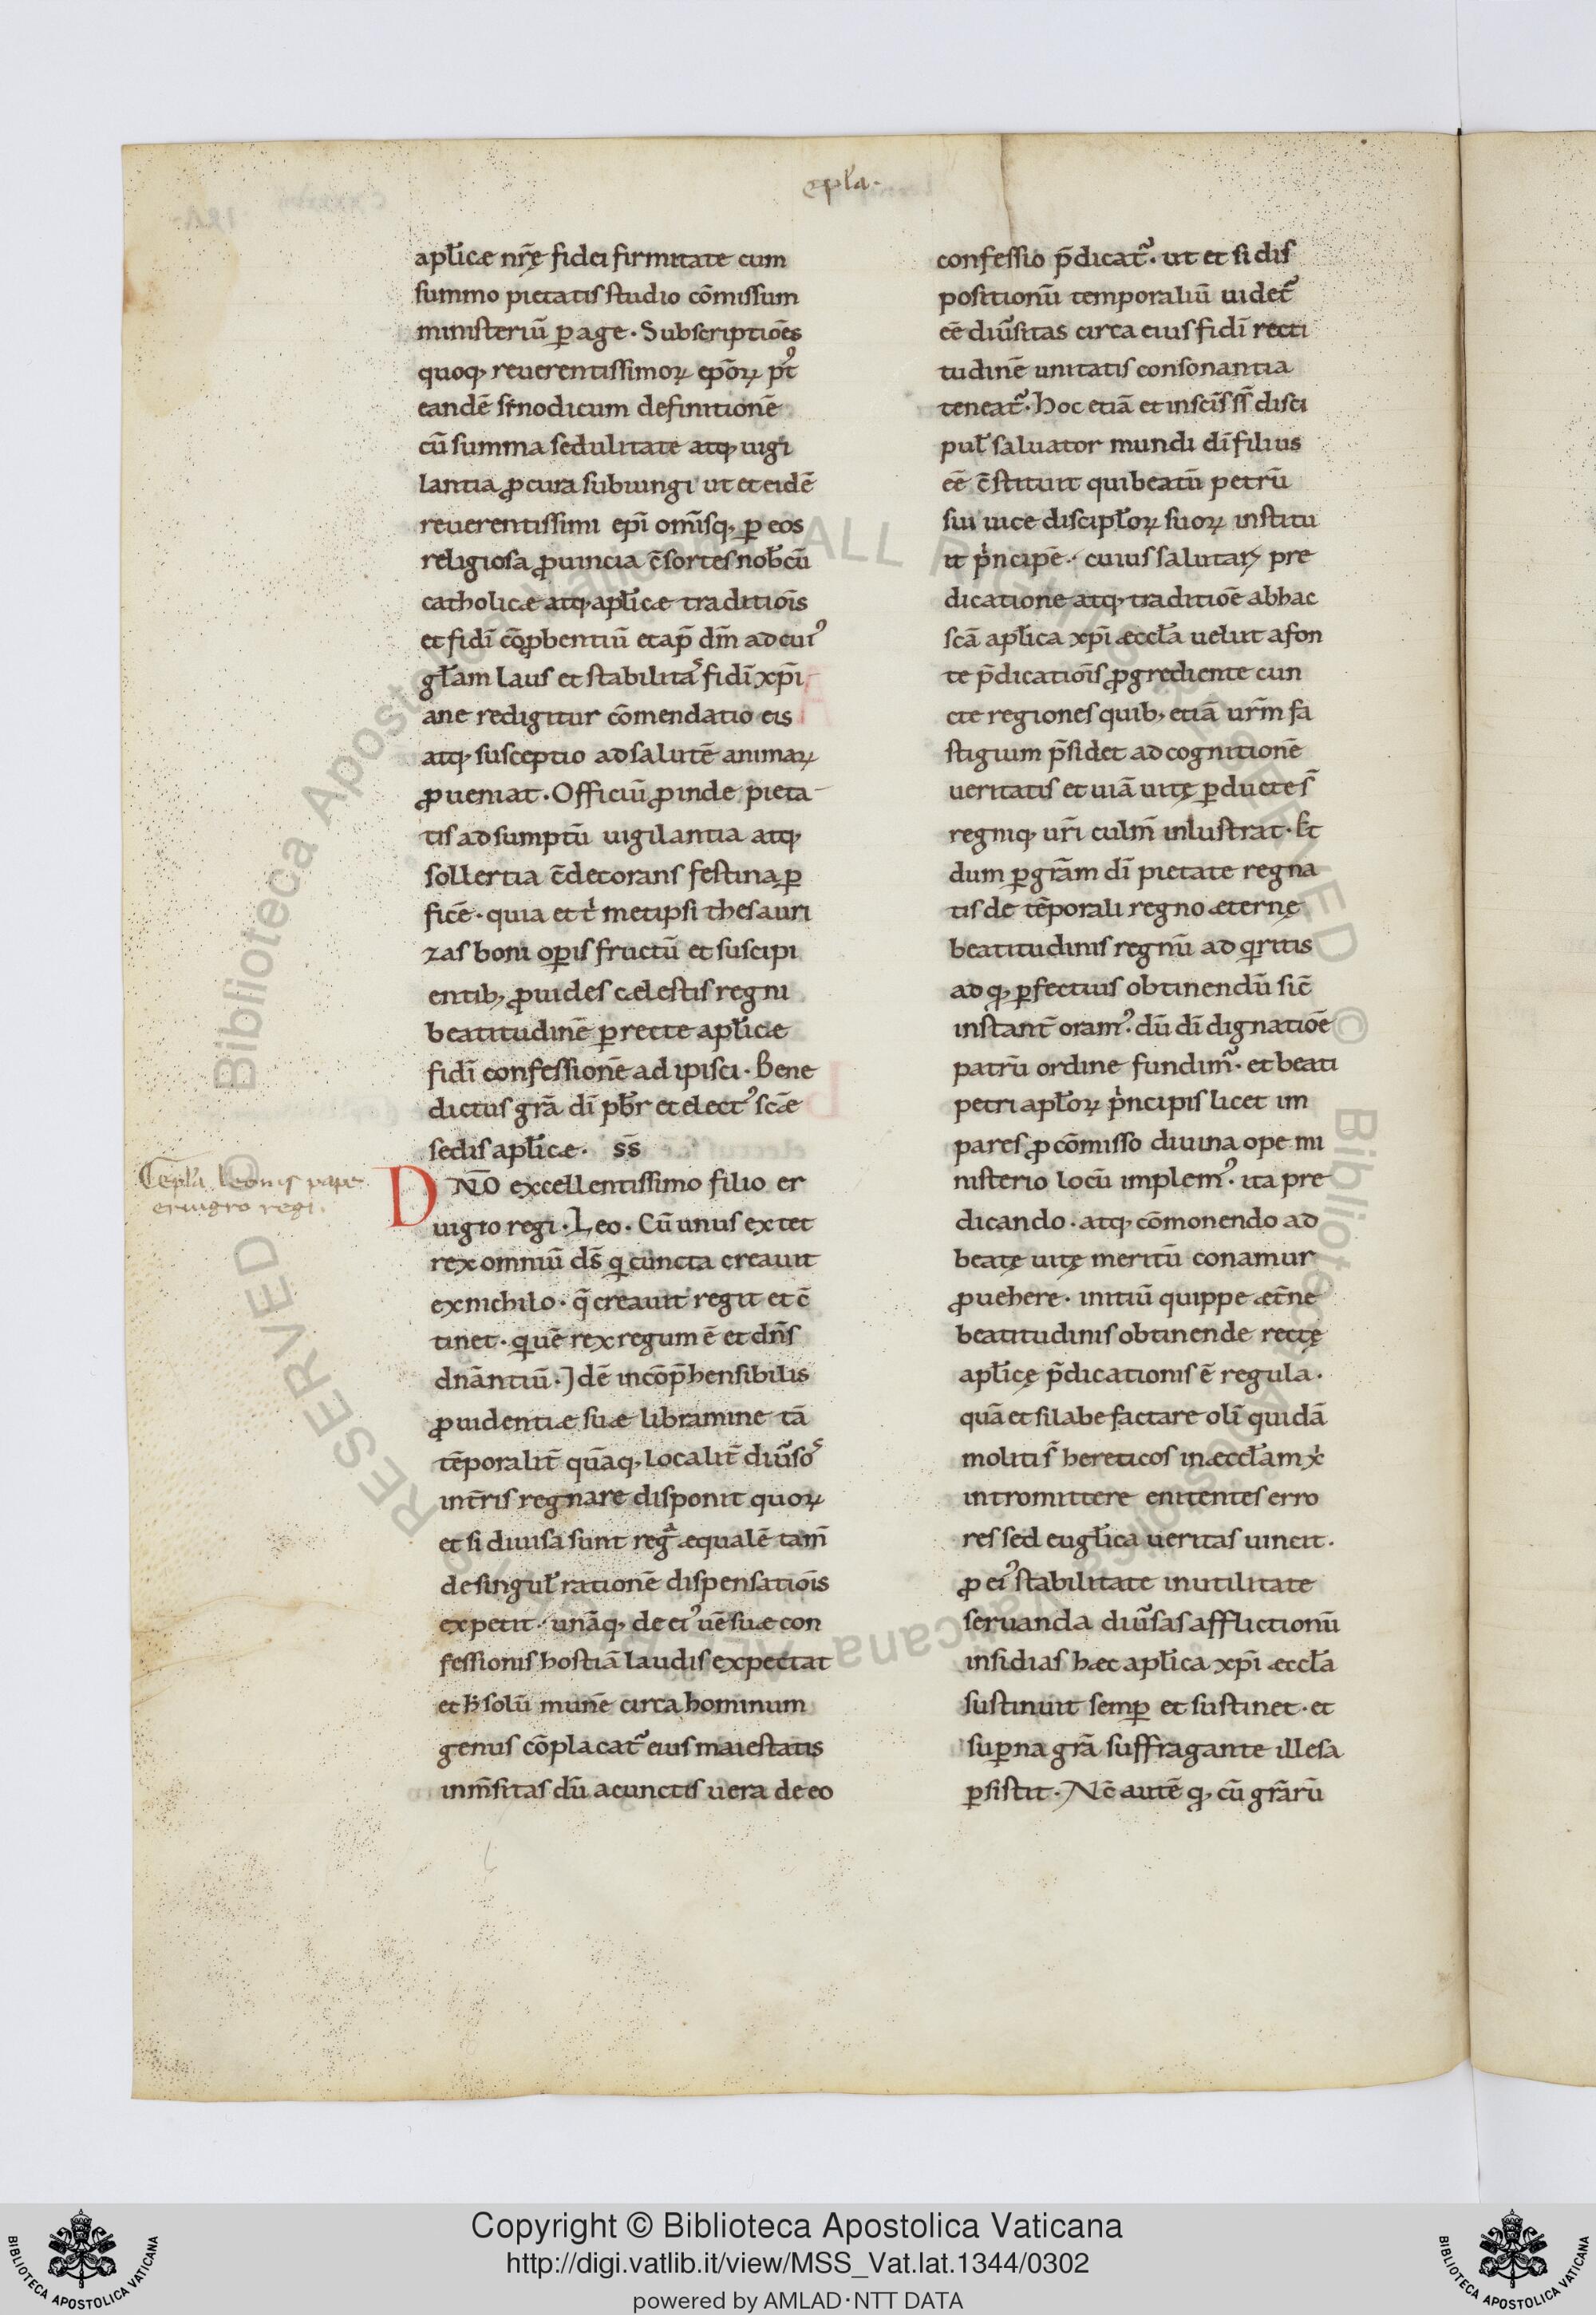 epl̄a·
apl̄icæ nr̄ę fidei firmitate cum
summo pietatis studio cōmissum
ministeriū ꝑage · Subscriptiōes
quoq; reuerentissimoꝝ ep̄oꝝ p᷒t
eandē sẏnodicum definitionē
cū summa sedulitate atq; uigi
lantia ꝓcura subiungi ut et eidē
reuerentissimi epī om̄isq; ꝑ eos
religiosa ꝓuincia c̄sortes nob̄cū
catholicæ atq; apl̄icæ traditiōis
et fidī cōꝓbentiū et ap̄ dm̄ ad cui᷒
gl̄am laus et stabilitas fidī xp̄i
ane redigitur cōmendatio eis
atq; susceptio ad salutē animaꝝ
ꝓueniat · Officiū ꝓinde pieta
tis adsumptū uigilantia atq;
sollertia c̄decorans festina ꝑ
ficē · quia et t' metipsi thesauri
zas boni oꝑis fructū et suscipi
entib; ꝓuides cælestis regni
beatitudinē ꝑ rectæ apl̄icæ
fidī confessionē adipisci · Bene
dictus grā dī pb̄r et elect᷒ scāe
sedis apl̄icæ · ss̄
Cepl̄a leonis pape
eruigio regi.
DN̄O excellentissimo filio er
uigio regi · Leo · Cū unus extet
rex omniū ds̄ ꝗ cuncta creauit
ex nichilo · q̄ creauit regit et c̄
tinet · ꝗ uē rex regum ē et dn̄s
dnāntiū · Idē incōp̄hensibilis
ꝓuidentiæ suæ libramine tā
tēporalit̄ quāq; localit̄ diūsos
int̄ris regnare disponit quoꝝ
et si diuisa sunt regͣ æqualē tam̄
de singul̄ rationē dispensatiōis
expetit · unāq; de ei᷒ uē suæ con
fessionis hostiā laudis expectat
et h' solū munē circa hominum
genus cōplacat᷑ eius maiestatis
inm̄sitas dū a cunctis uera de eo
confessio p̄dicat᷑ · ut et si dis
positionū temporaliū uidet᷑
eē diūsitas circa eius fidī recti
tudinē unitatis consonantia
teneat᷑ · hoc etiā et in scīs ss̄ disci
pul̄ saluator mundi dī filius
eē c̄stituit qui beatū petrū
sui uice discipl̄oꝝ suoꝝ institu
it p'ncipē · cuius salutaꝝ pre
dicatione atq; traditiōe ab hac
scā apl̄ica xp̄i æccl̄a uelut a fon
te p̄dicatiōis ꝓgrediente cun
cte regiones quib; etiā ur̄m fa
stigium p̄sidet ad cognitionē
ueritatis et uiā uitę ꝑducte s̄
regniq; ur̄i culm̄ inlustrat · Et
dum ꝑ grām dī pietate regna
tis de tēporali regno æternę
beatitudinis regnū ad ꝗritis
ad ꝙ; ꝑfectius obtinendū sic̄
instant̄ oram᷒ · dū dī dignatiōe
patrū ordine fundim᷑ · et beati
petri apl̄oꝝ p'ncipis licet im
pares ꝓ cōmisso diuina ope mi
nisterio locū implem᷒ · ita pre
dicando · atq; cōmonendo ad
beatę uitę meritū conamur
ꝓuehere · initiū quippe æt̄ne
beatitudinis obtinende rectę
apl̄icę p̄dicationis ē regula ·
quā et si labefactare olī quidā
moliti s̄ hereticos in æccl̄am x'
intromittere enitentes erro
res sed eugl̄ica ueritas uincit ·
ꝓ ei᷒ stabilitate inutilitate
seruanda diūsas afflictionū
insidias hæc apl̄ica xp̄i æccl̄a
sustinuit semꝑ et sustinet · et
suꝑna grā suffragante illesa
ꝑsistit · Nc̄ autē ꝙ; cū grārū
Copyright © Biblioteca Apostolica Vaticana
http://digi.vatlib.it/view/MSS_Vat.lat.1344/0302
powered by AMLAD·NTT DATA